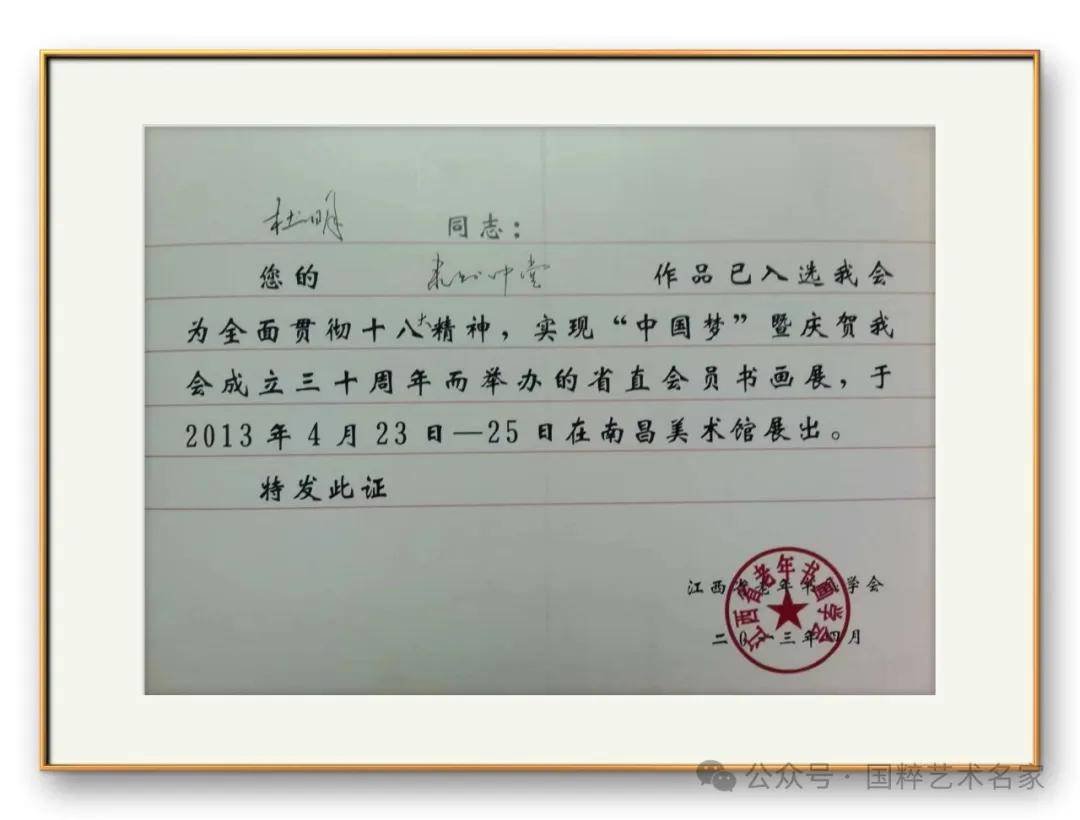 杜明 同志：
您的 中堂 作品已入选我会
为全面贯彻十八大精神，实现“中国梦”暨庆贺我
会成立三十周年而举办的省直会员书画展，于
2013年4月23日—25日在南昌美术馆展出。
特发此证
江西省老年书画学会
江西省老年书画学会
二0一三年四月
公众号·国粹艺术名家